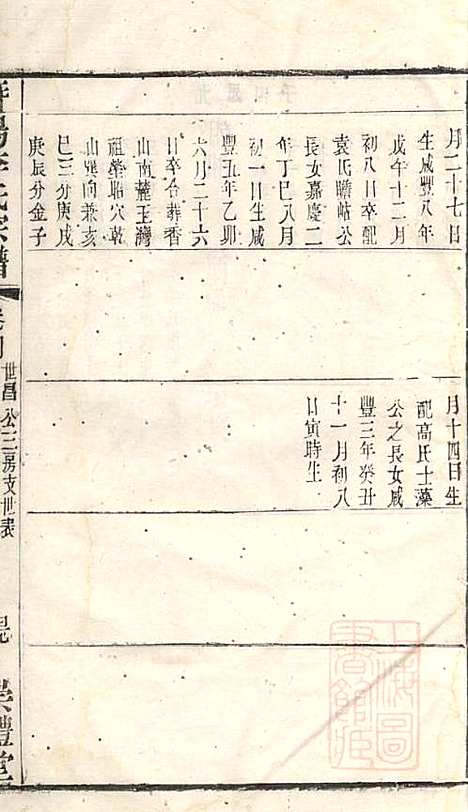 月二十七日
生咸豐八年
戊午十二月
初八日卒配
袁氏聯岵公
長女嘉慶二
年丁巳八月
初一日生咸
豐五年乙卯
六月二十六
日卒合葬香
山南麓玉灣
祖塋昭穴乾
山巽向兼亥
巳三分庚戌
庚辰分金子
月十四日生
配高氏士藻
公之長女咸
豐三年癸丑
十一月初八
日寅時生
李氏宗譜
世昌公三房支世表
上海圖書館藏